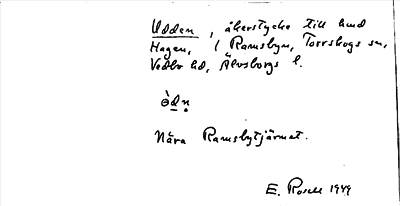 Udden, åkerstycke till hmd
Hagen, i Ramsbyn, Torrskogs sn,
Vedbo hd, Älvsborgs l.
ùdn
Nära Ramsbytjärnet.
E. Rosell 1949